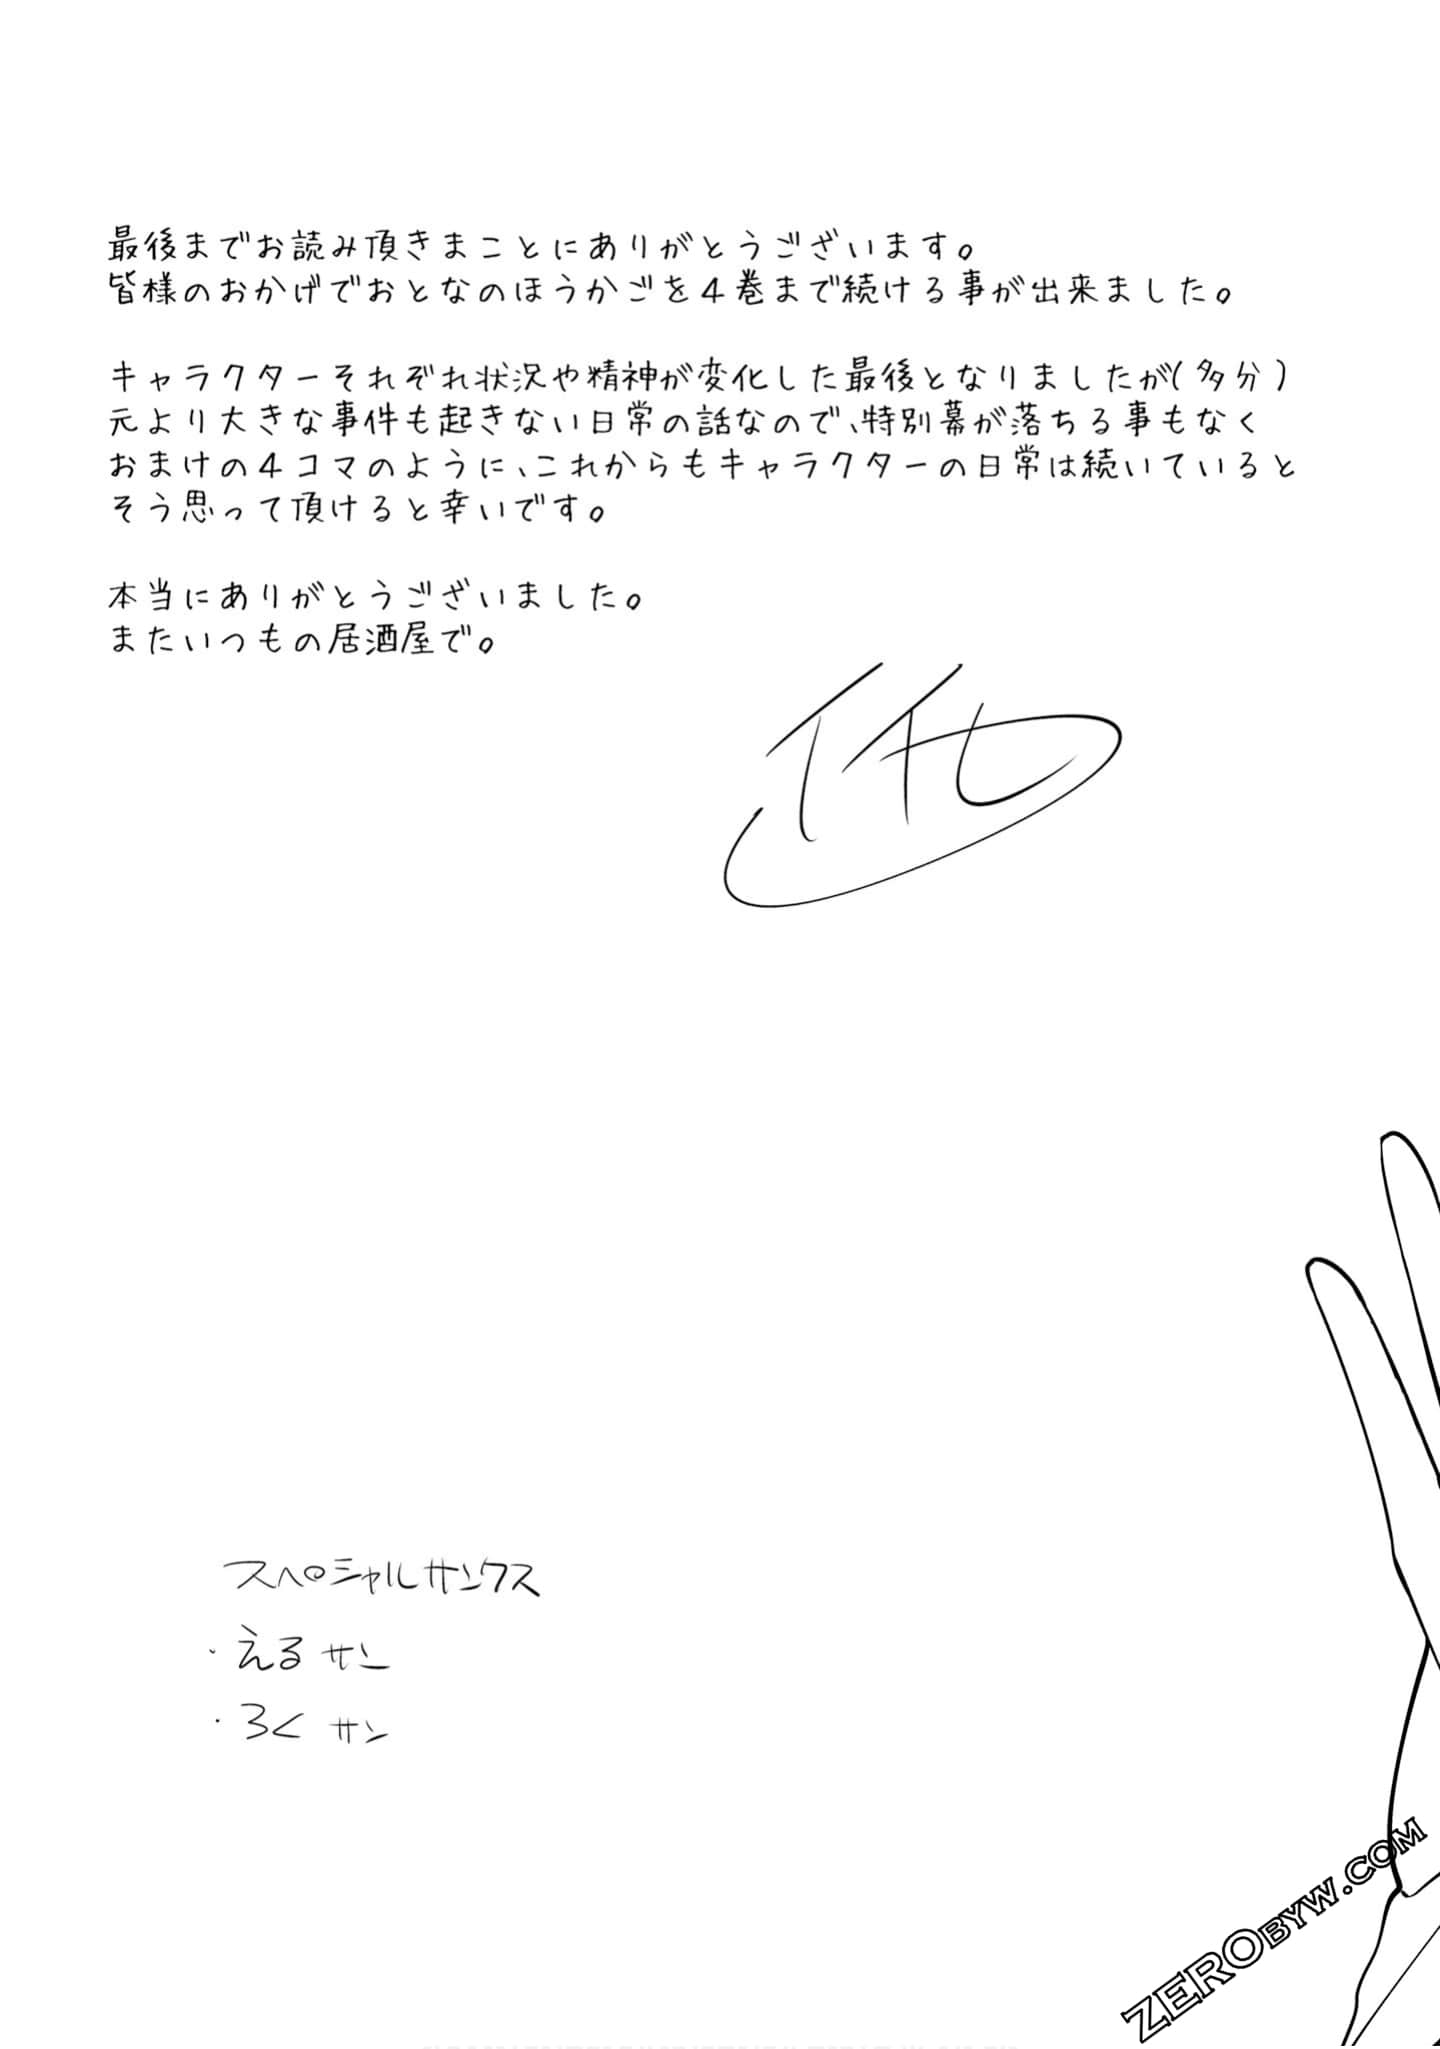 最後までお読み頂きまことにありがとうございます。
皆様のおかげでおとなのほうかごを4巻まで続ける事が出来ました。
キャラクターそれぞれ状況や精神が変化した最後となりましたが(多分)
元より大きな事件も起きない日常の話なので、特別幕が落ちる事もなく
おまけの4コマのように、これからもキャラクターの日常は続いていると
そう思って頂けると幸いです。
本当にありがとうございました。
またいつもの居酒屋で。
スペシャルサンクス
・えるサン
・ろくサン
ZEROBYW.COM